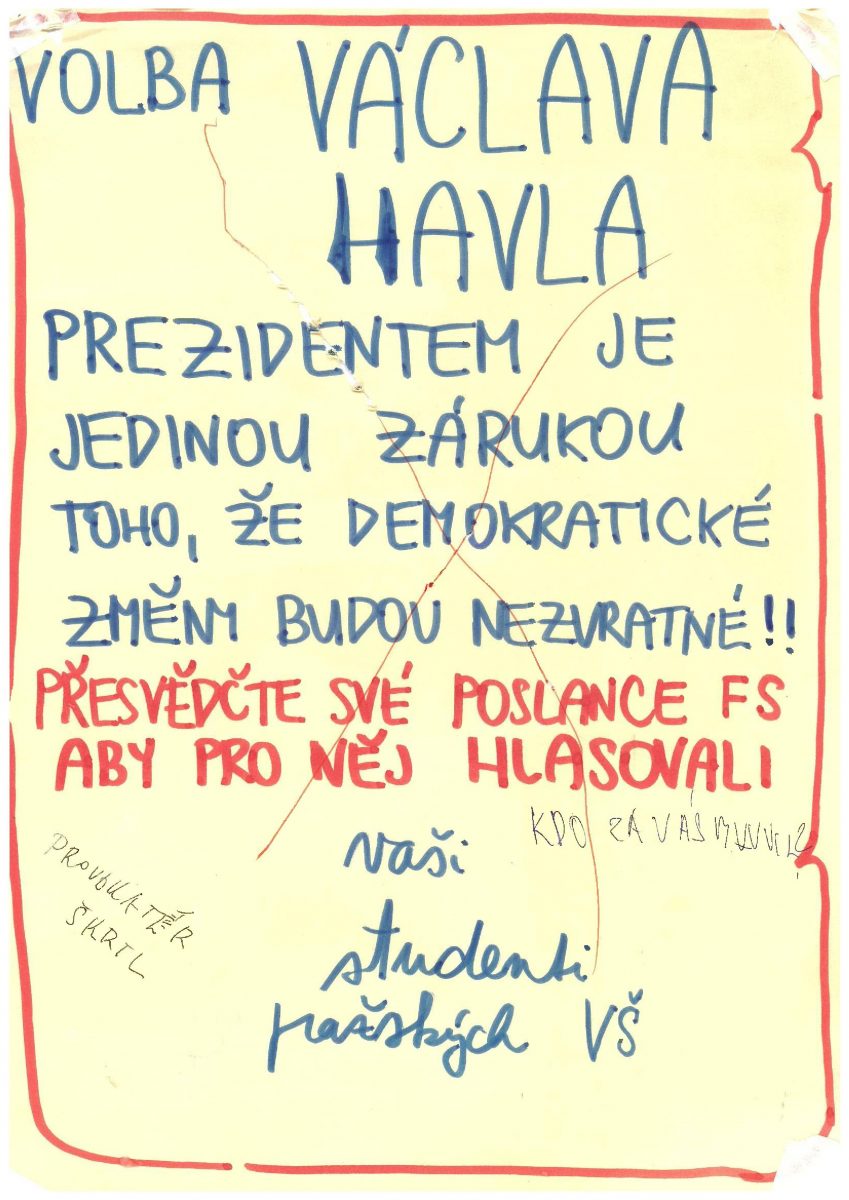 VOLBA VÁCLAVA
HAVLA
PREZIDENTEM JE
JEDINOU ZÁRUKOU
TOHO, ŽE DEMOKRATICKÉ
ZMĚNY BUDOU NEZVRATNÉ!!
PŘESVĚDČTE SVÉ POSLANCE FS
ABY PRO NĚJ HLASOVALI
KDO ZA VÁS
vaši
PROVOKATÉR
ŠKRTL
studenti
pražských VŠ